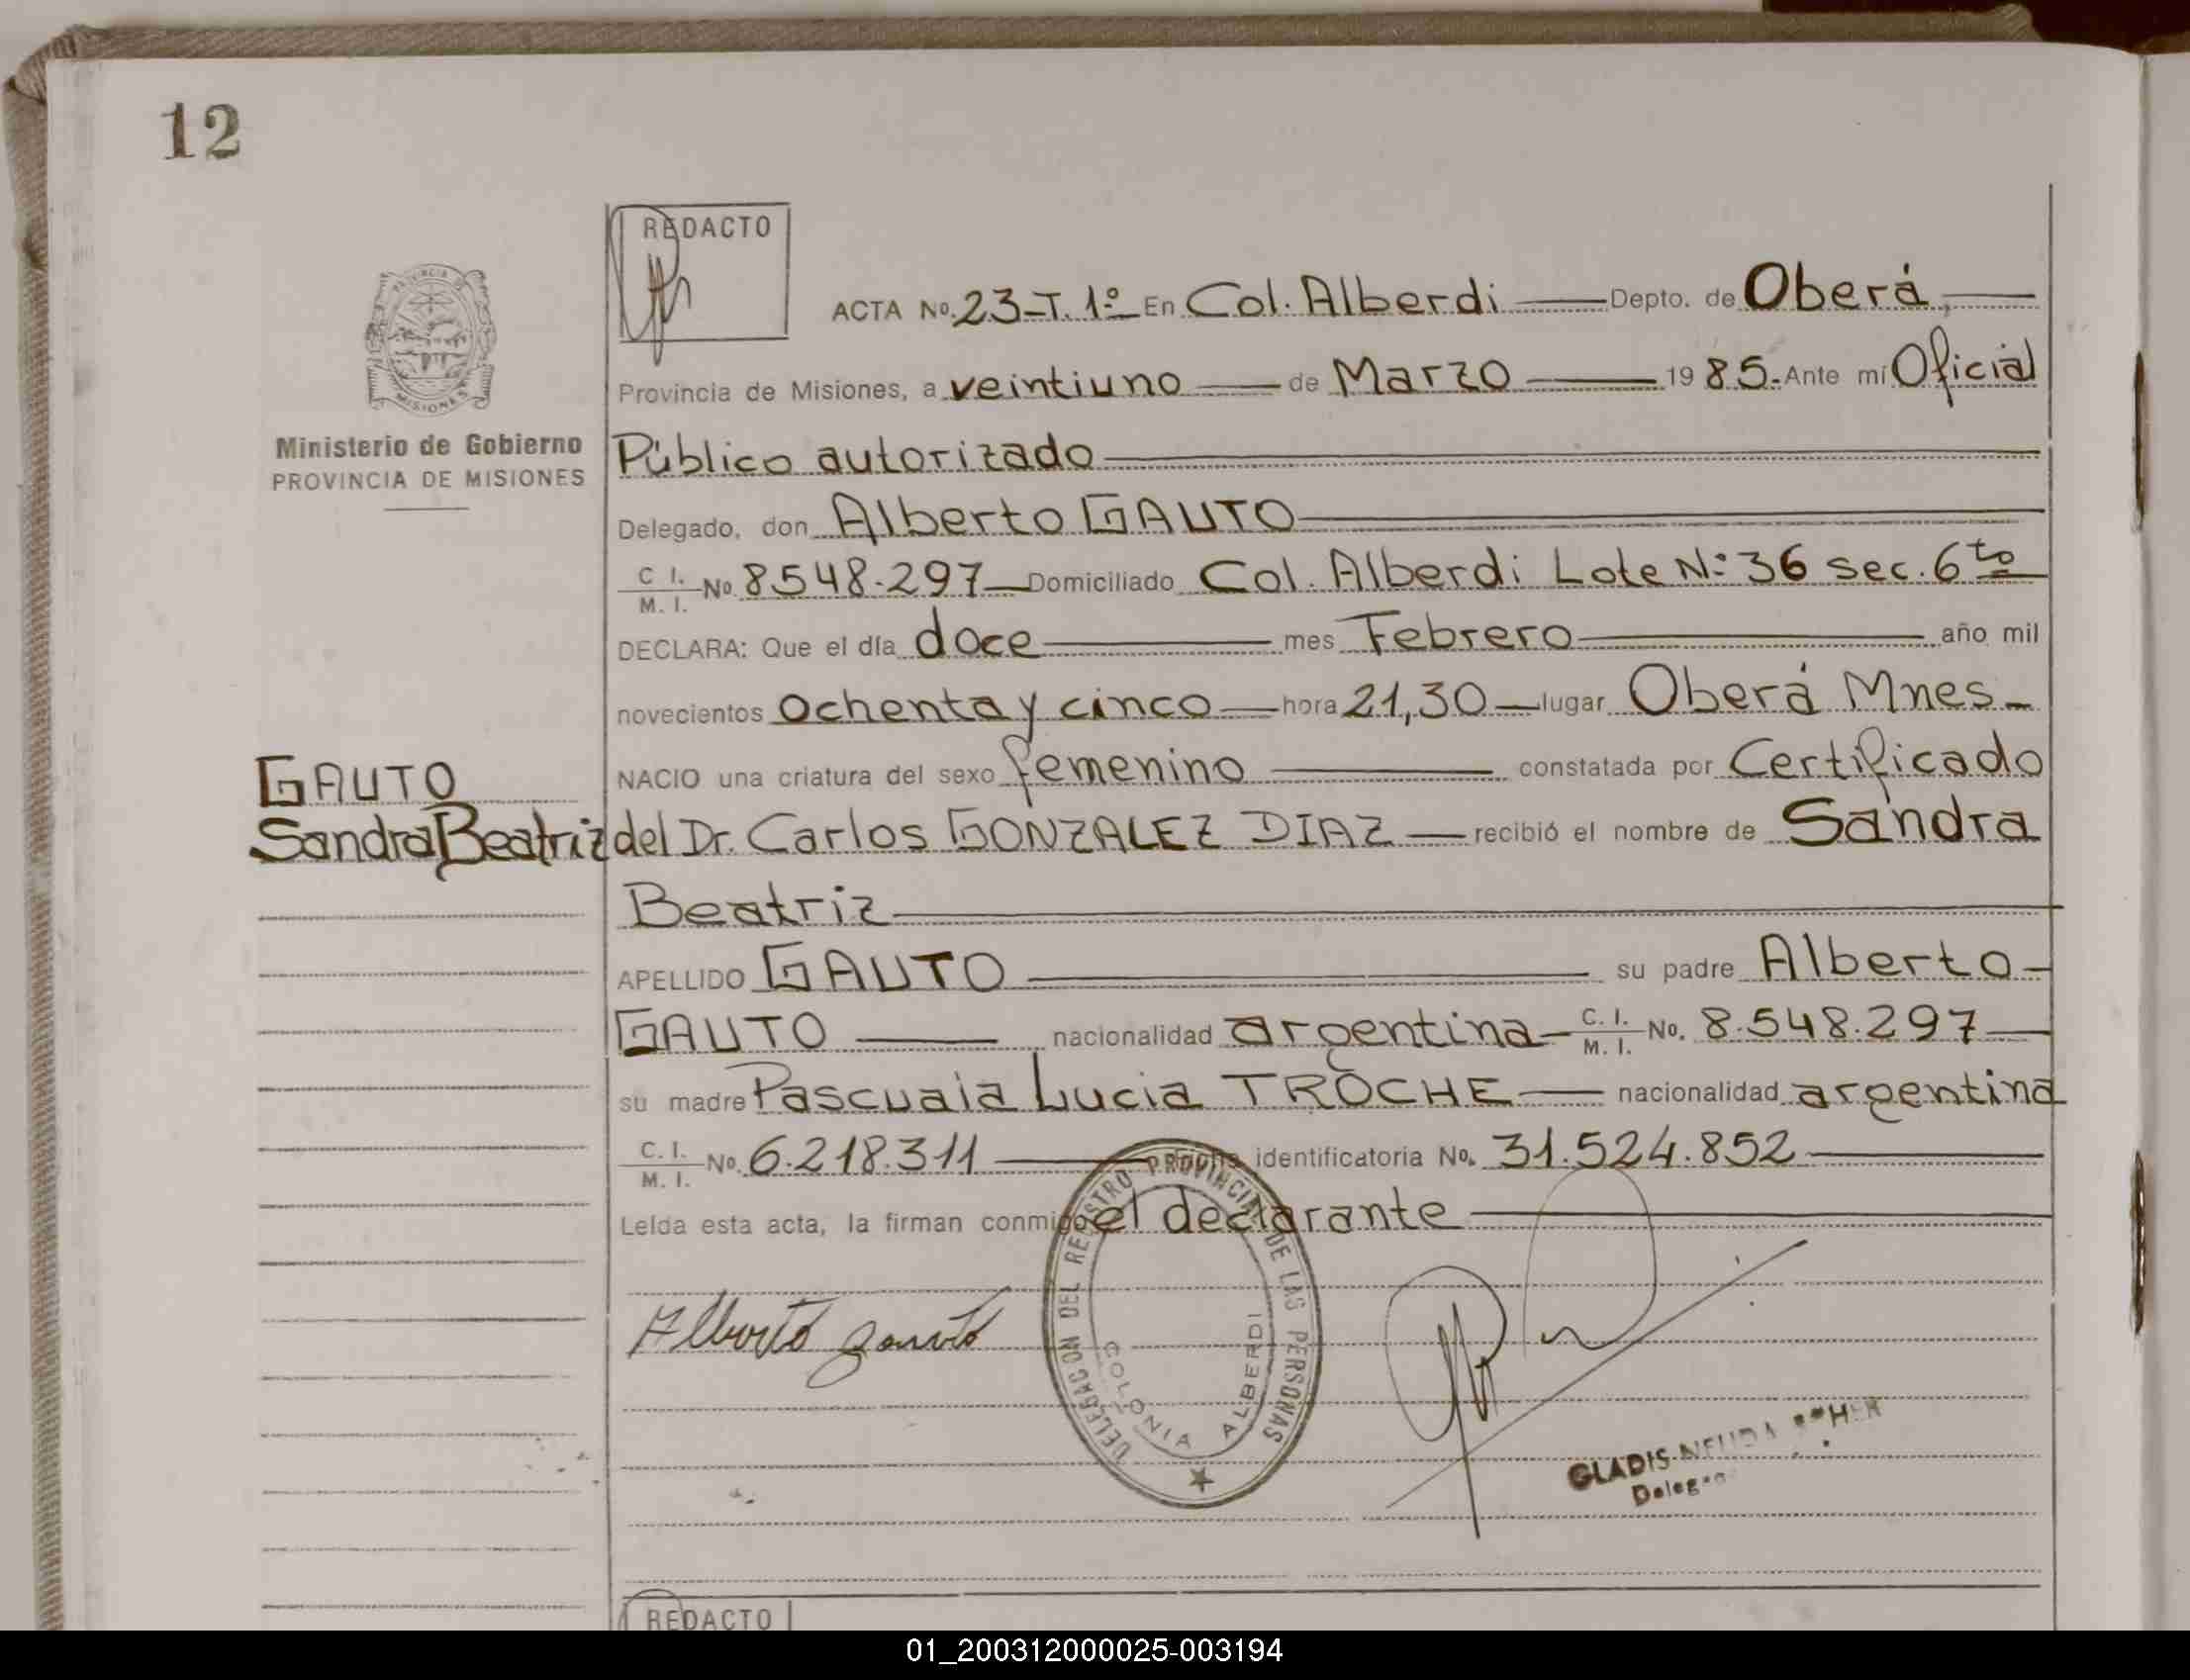 12
REDACTO
ACTA No. 23-T. 1º En Col. Alberdi Depto. de Oberá,
Provincia de Misiones, a veintiuno de Marzo 1985.- Ante mí Oficial
Ministerio de Gobierno
PROVINCIA DE MISIONES
Público autorizado
Delegado, don Alberto GAUTO
C I. M. I. No. 8548.297 Domiciliado Col. Alberdi Lote Nº 36 sec. 6to
DECLARA: Que el día doce mes Febrero año mil
novecientos ochenta y cinco hora 21,30 lugar Oberá Mnes-
NACIO una criatura del sexo femenino constatada por Certificado
GAUTO
Sandra Beatriz
del Dr. Carlos GONZALEZ DIAZ recibió el nombre de Sandra
Beatriz
APELLIDO GAUTO su padre Alberto
GAUTO nacionalidad argentina C. I. M. I. No. 8.548.297
su madre Pascuala Lucia TROCHE nacionalidad argentina
C. I. M. I. No. 6.218.311 identificatoria No. 31.524.852
Leída esta acta, la firman conmigo el declarante
Alberto Gauto
DELEGACION DEL REGISTRO PROVINCIAL DE LAS PERSONAS
COLONIA ALBERDI
GLADIS
REDACTO
01_200312000025-003194